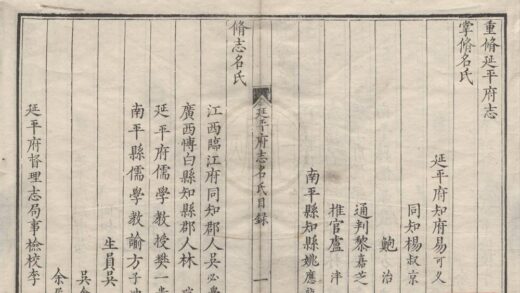 重脩延平府志
掌脩名氏
延平府知府易可久
同知楊叔京
鮑治
通判黎嘉芝
推官盧泮
南平縣知縣姚應
延平府志名氏目錄
一
脩志名氏
江西臨江府同知郡人吳必
廣西博白縣知縣郡人林
延平府儒學教授樊一
南平縣儒學教諭方子
生員吳
吳
余
延平府督理志局事檢校李